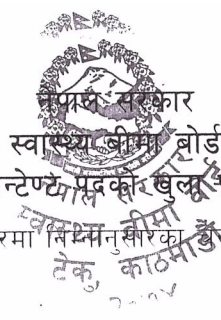 नेपाल सरकार
स्वास्थ्य बीमा बोर्ड
न्टेण्ट पदको खुला
रमा निम्नानुसारका
स्वास्थ्य बीमा
टेकु, काठमाडौं